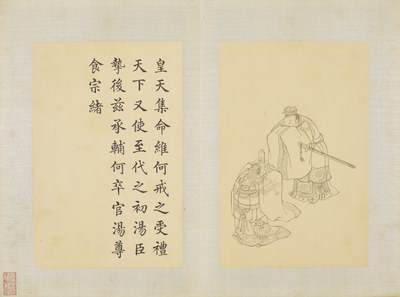 皇天集命維何戒之受禮
天下又使至代之初湯臣
摯後兹承輔何卒官湯尊
食宗緒